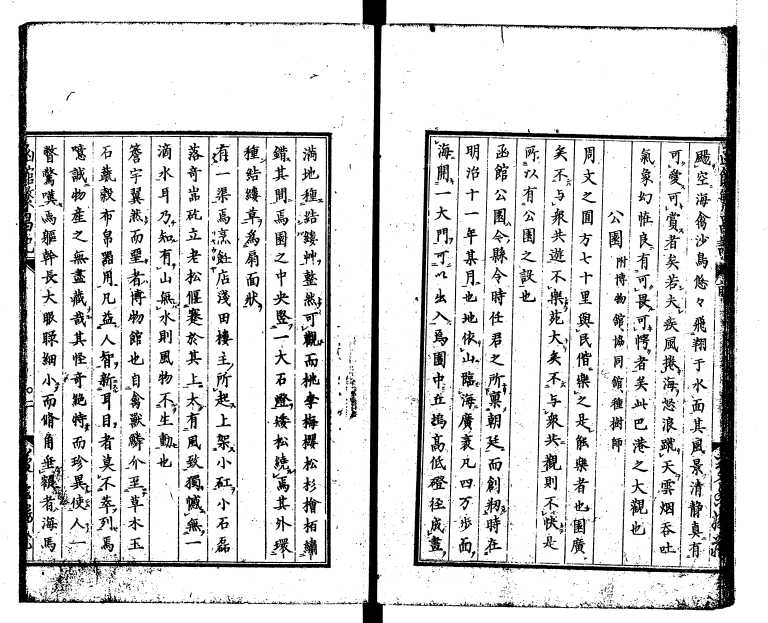 颺空海禽沙鳥悠々飛翔于水面其風景清靜真有
可愛可賞者矣若夫疾風捲海怒浪蹴天雲烟吞吐
氣象幻恠良有可畏可愕者矣此巴港之大觀也
公園 附博物館協同館種樹師
周文之囿方七十里與民偕樂之是能樂者也園廣
矣不与衆共遊不樂苑大矣不与衆共觀則不快是
所以有公園之設也
函館公園令縣令時任君之所稟朝廷而創剏時在
明治十一年某月也地依山臨海廣袤凡四万步而
海開一大門可以出入焉園中丘塢高低磴徑成畫
滿地種結縷艸整然可觀而桃李梅櫻松杉檜栢繡
錯其間焉園之中央竪一大石燈矮松繞焉其外環
種結縷草為扇面狀
有一渠焉烹飪店淺田樓主所起上架小矼小石磊
落奇嵓砒立老松偃蹇於其上太有風致獨憾無一
滴水耳乃知有山無水則風物不生動也
簷宇翼然而聖者博物館也自禽獸鱗介至草木玉
石菽穀布帛器用凡益人智新耳目者莫不萃列焉
噫誠物産之無盡藏哉其怪奇絶特而珍異使人一
瞥驚嘆焉軀幹長大眼睩細小而脩角垂頷者海馬